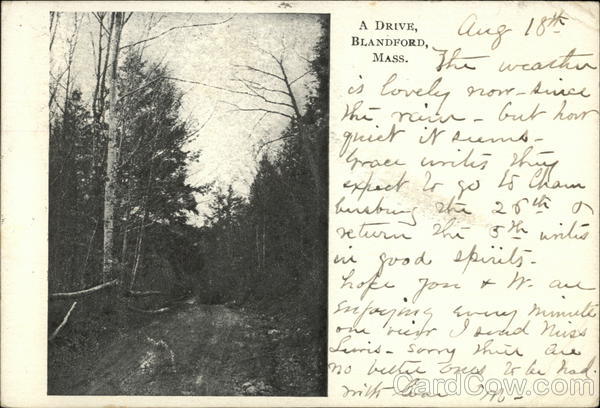 A DRIVE,
BLANDFORD,
MASS.
Aug 18th
The weather
is lovely now - since
the rain - but how
quiet it seems -
Grace writes they
expect to go to Cham
bersburg the 26th &
return the 5th writes
in good spirits -
hope you & W. are
enjoying every minute
one view I send Miss
Lewis - sorry there are
no better ones to be had.
with love
CardCow.com